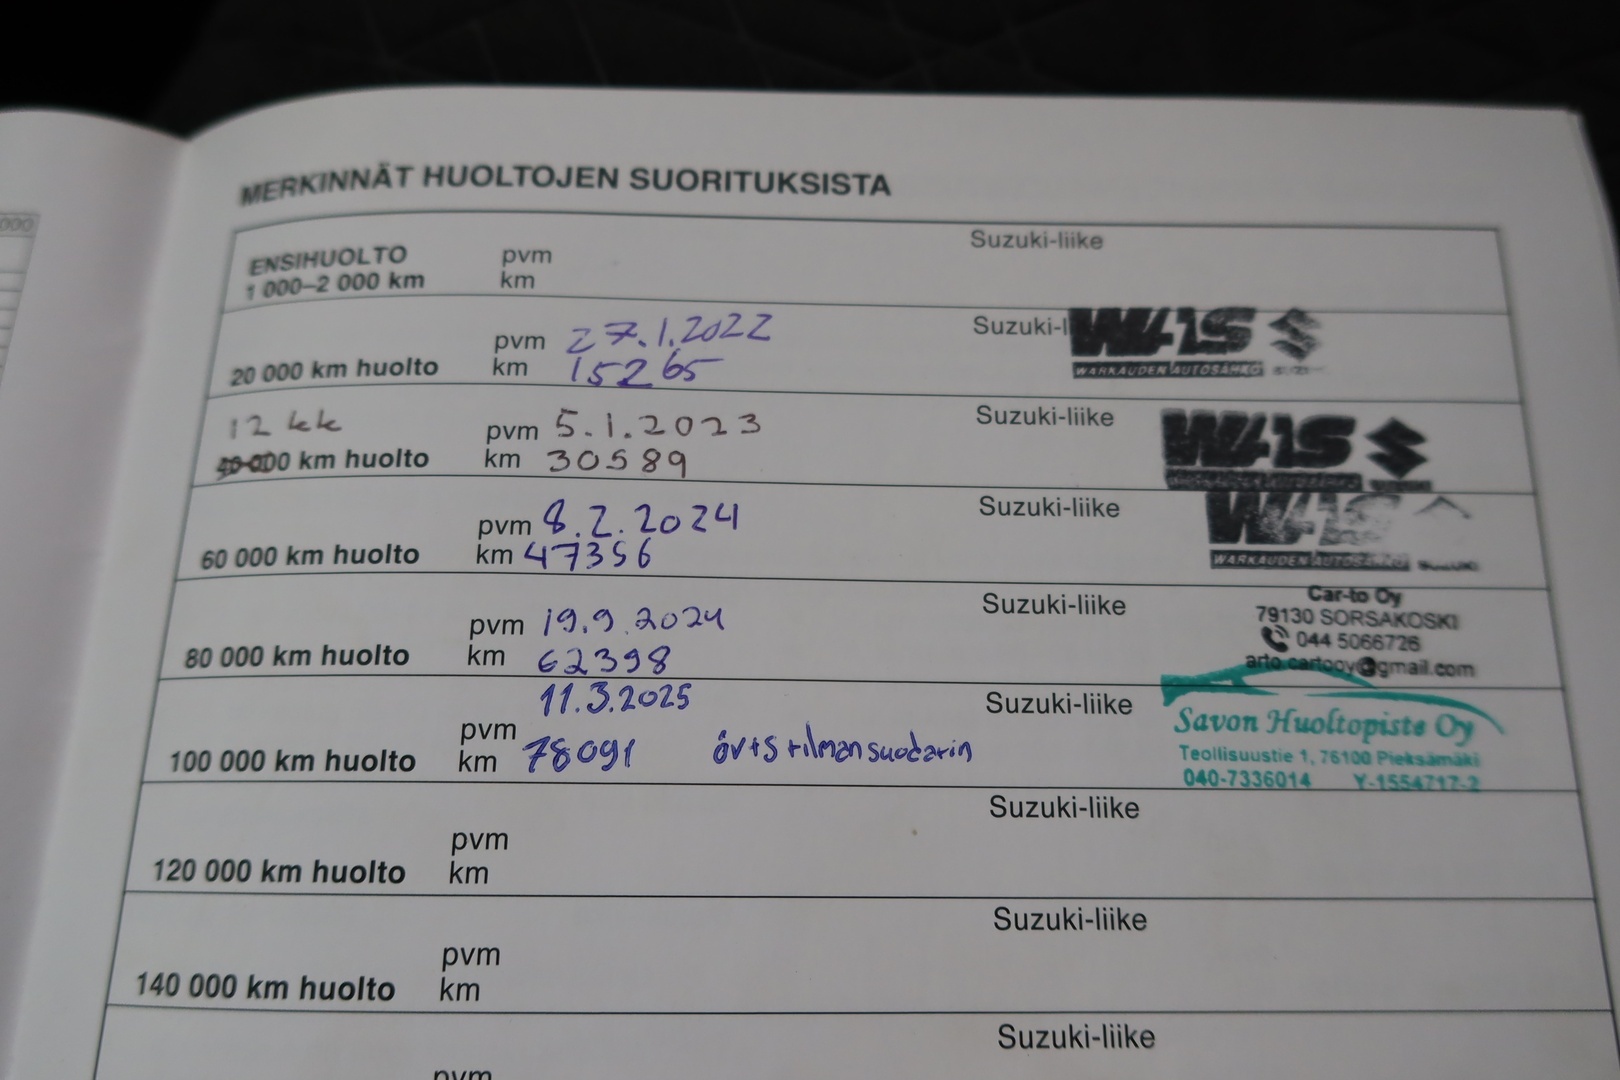 000
MERKINNÄT HUOLTOJEN SUORITUKSISTA
ENSIHUOLTO pvm Suzuki-liike
1 000–2 000 km km
pvm 27.1.2022 Suzuki-l WAS
20 000 km huolto km 15265 WARKAUDEN AUTOSÄHKÖ
12 kk pvm 5.1.2023 Suzuki-liike WAS
40 000 km huolto km 30589
pvm 8.2.2024 Suzuki-liike WAS
60 000 km huolto km 47356 WARKAUDEN AUTOSÄHKÖ SUZUKI
Car-to Oy
pvm 19.9.2024 Suzuki-liike 79130 SORSAKOSKI
044 5066726
80 000 km huolto km 62398 arto.cartooy@gmail.com
11.3.2025 Suzuki-liike
pvm Savon Huoltopiste Oy
100 000 km huolto km 78091 öv+s+ilmansuodatin Teollisuustie 1, 76100 Pieksämäki
040-7336014 Y-1554717-2
pvm Suzuki-liike
120 000 km huolto km
pvm Suzuki-liike
140 000 km huolto km
Suzuki-liike
pvm